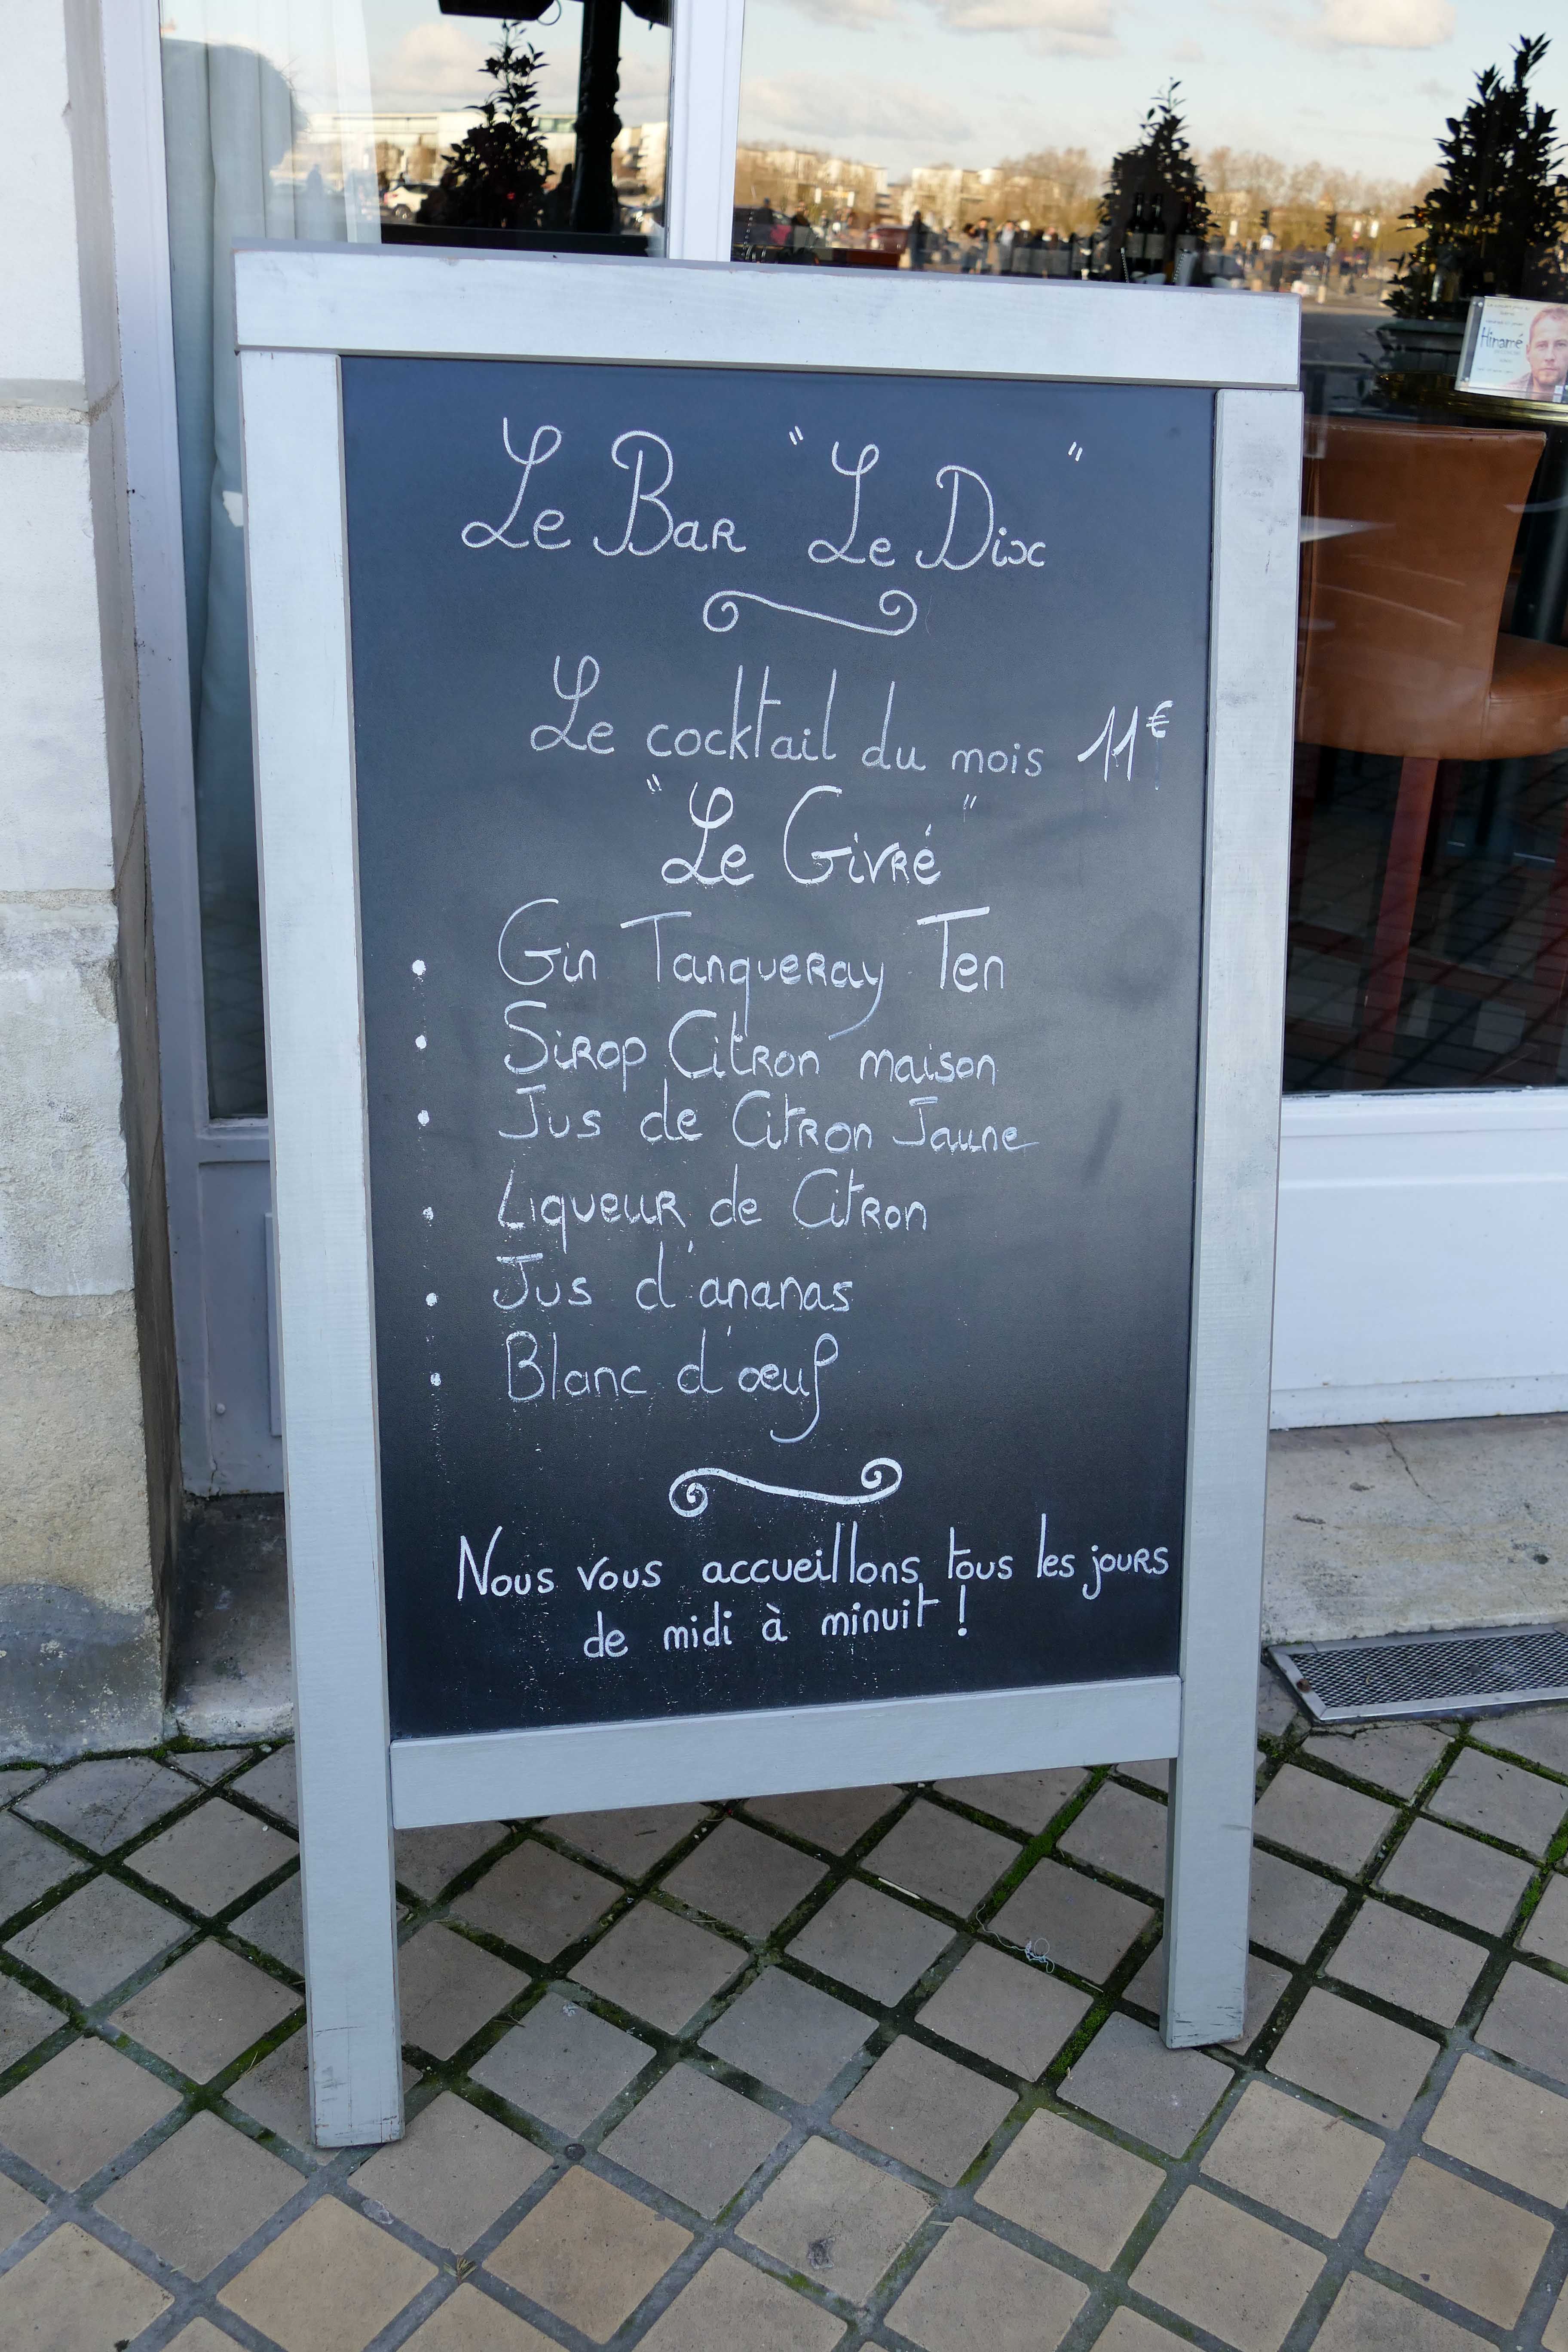 Le Bar "Le Dix"
Le cocktail du mois 11€
"Le Givré"
• Gin Tanqueray Ten
• Sirop Citron maison
• Jus de Citron Jaune
• Liqueur de Citron
• Jus d'ananas
• Blanc d'œuf
Nous vous accueillons tous les jours
de midi à minuit !